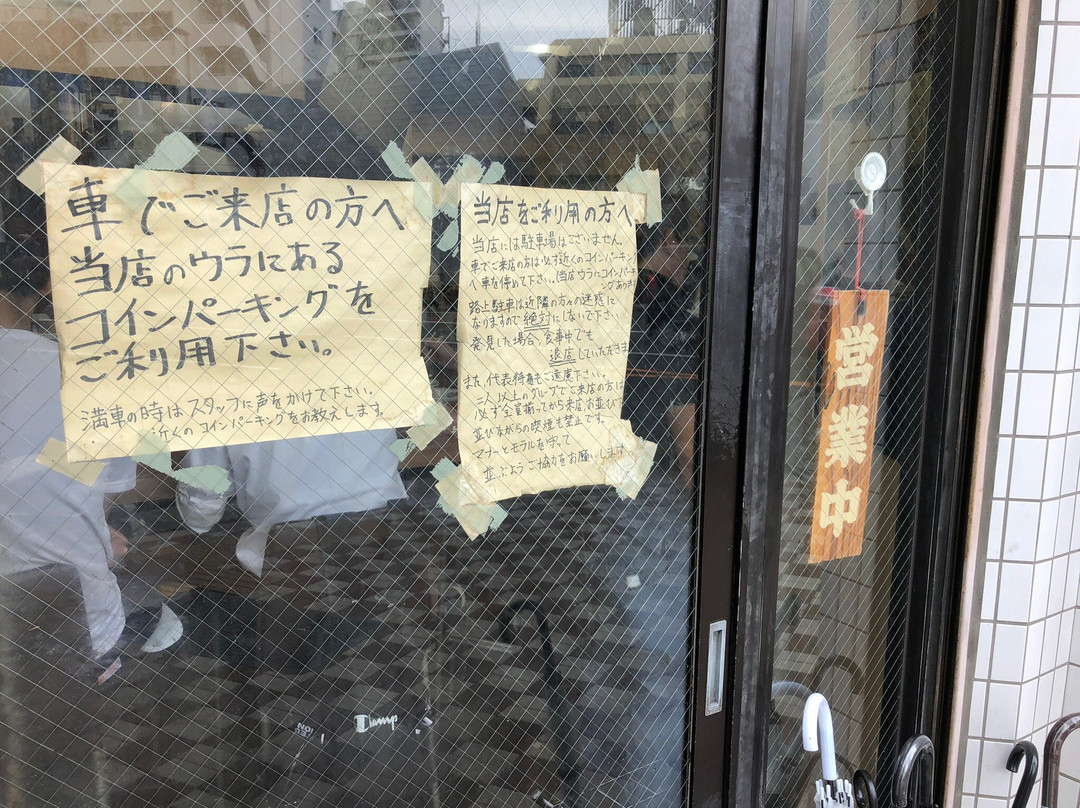 車でご来店の方へ
当店のウラにある
コインパーキングを
ご利用下さい。
満車の時はスタッフに声をかけて下さい。
近くのコインパーキングをお教えします。
当店をご利用の方へ
当店には駐車場はございません。
車でご来店の方は必ず近くのコインパーキン
へ車を停めて下さい。(当店ウラにコインパーキ
ングあります
路上駐車は近隣の方々の迷惑に
なりますので絶対にしないで下さい
発見した場合、食事中でも
退店していただきます
また、代表待ちもご遠慮下さい。
三人以上のグループでご来店の方は
必ず全員揃ってから来店、お並び
並びながらの喫煙も禁止です。
マナーとモラルを守って
並ぶようご協力をお願いします
営業中
Champ